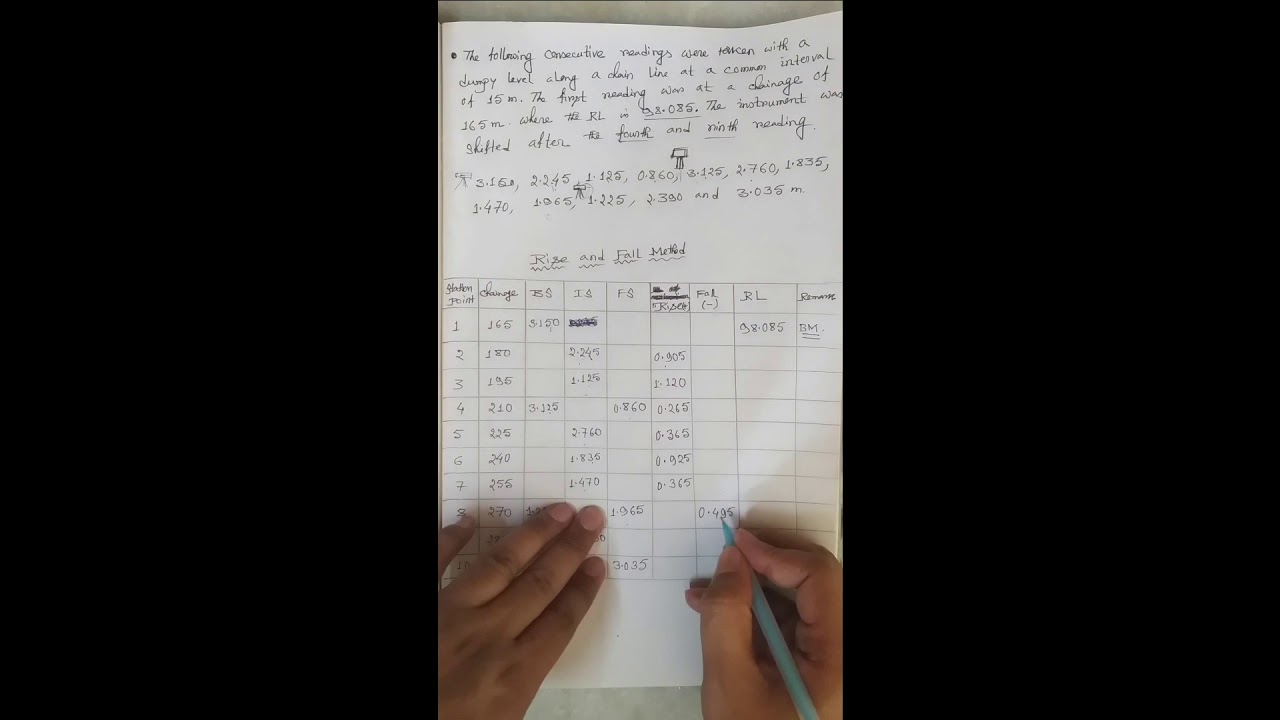 • The following consecutive readings were taken with a
dumpy level along a chain line at a common interval
of 15 m. The first reading was at a chainage of
165 m where the RL is 98.085. The instrument was
shifted after the fourth and ninth reading.
3.150, 2.245, 1.125, 0.860, 3.125, 2.760, 1.835,
1.470, 1.965, 1.225, 2.390 and 3.035 m.
Rise and Fall Method
Station Point Chainage BS IS FS Rise(+) Fall (-) RL
1 165 3.150 98.085 BM.
2 180 2.245 0.905
3 195 1.125 1.120
4 210 3.125 0.860 0.265
5 225 2.760 0.365
6 240 1.835 0.925
7 255 1.470 0.365
8 270 1.965 0.495
10 3.035